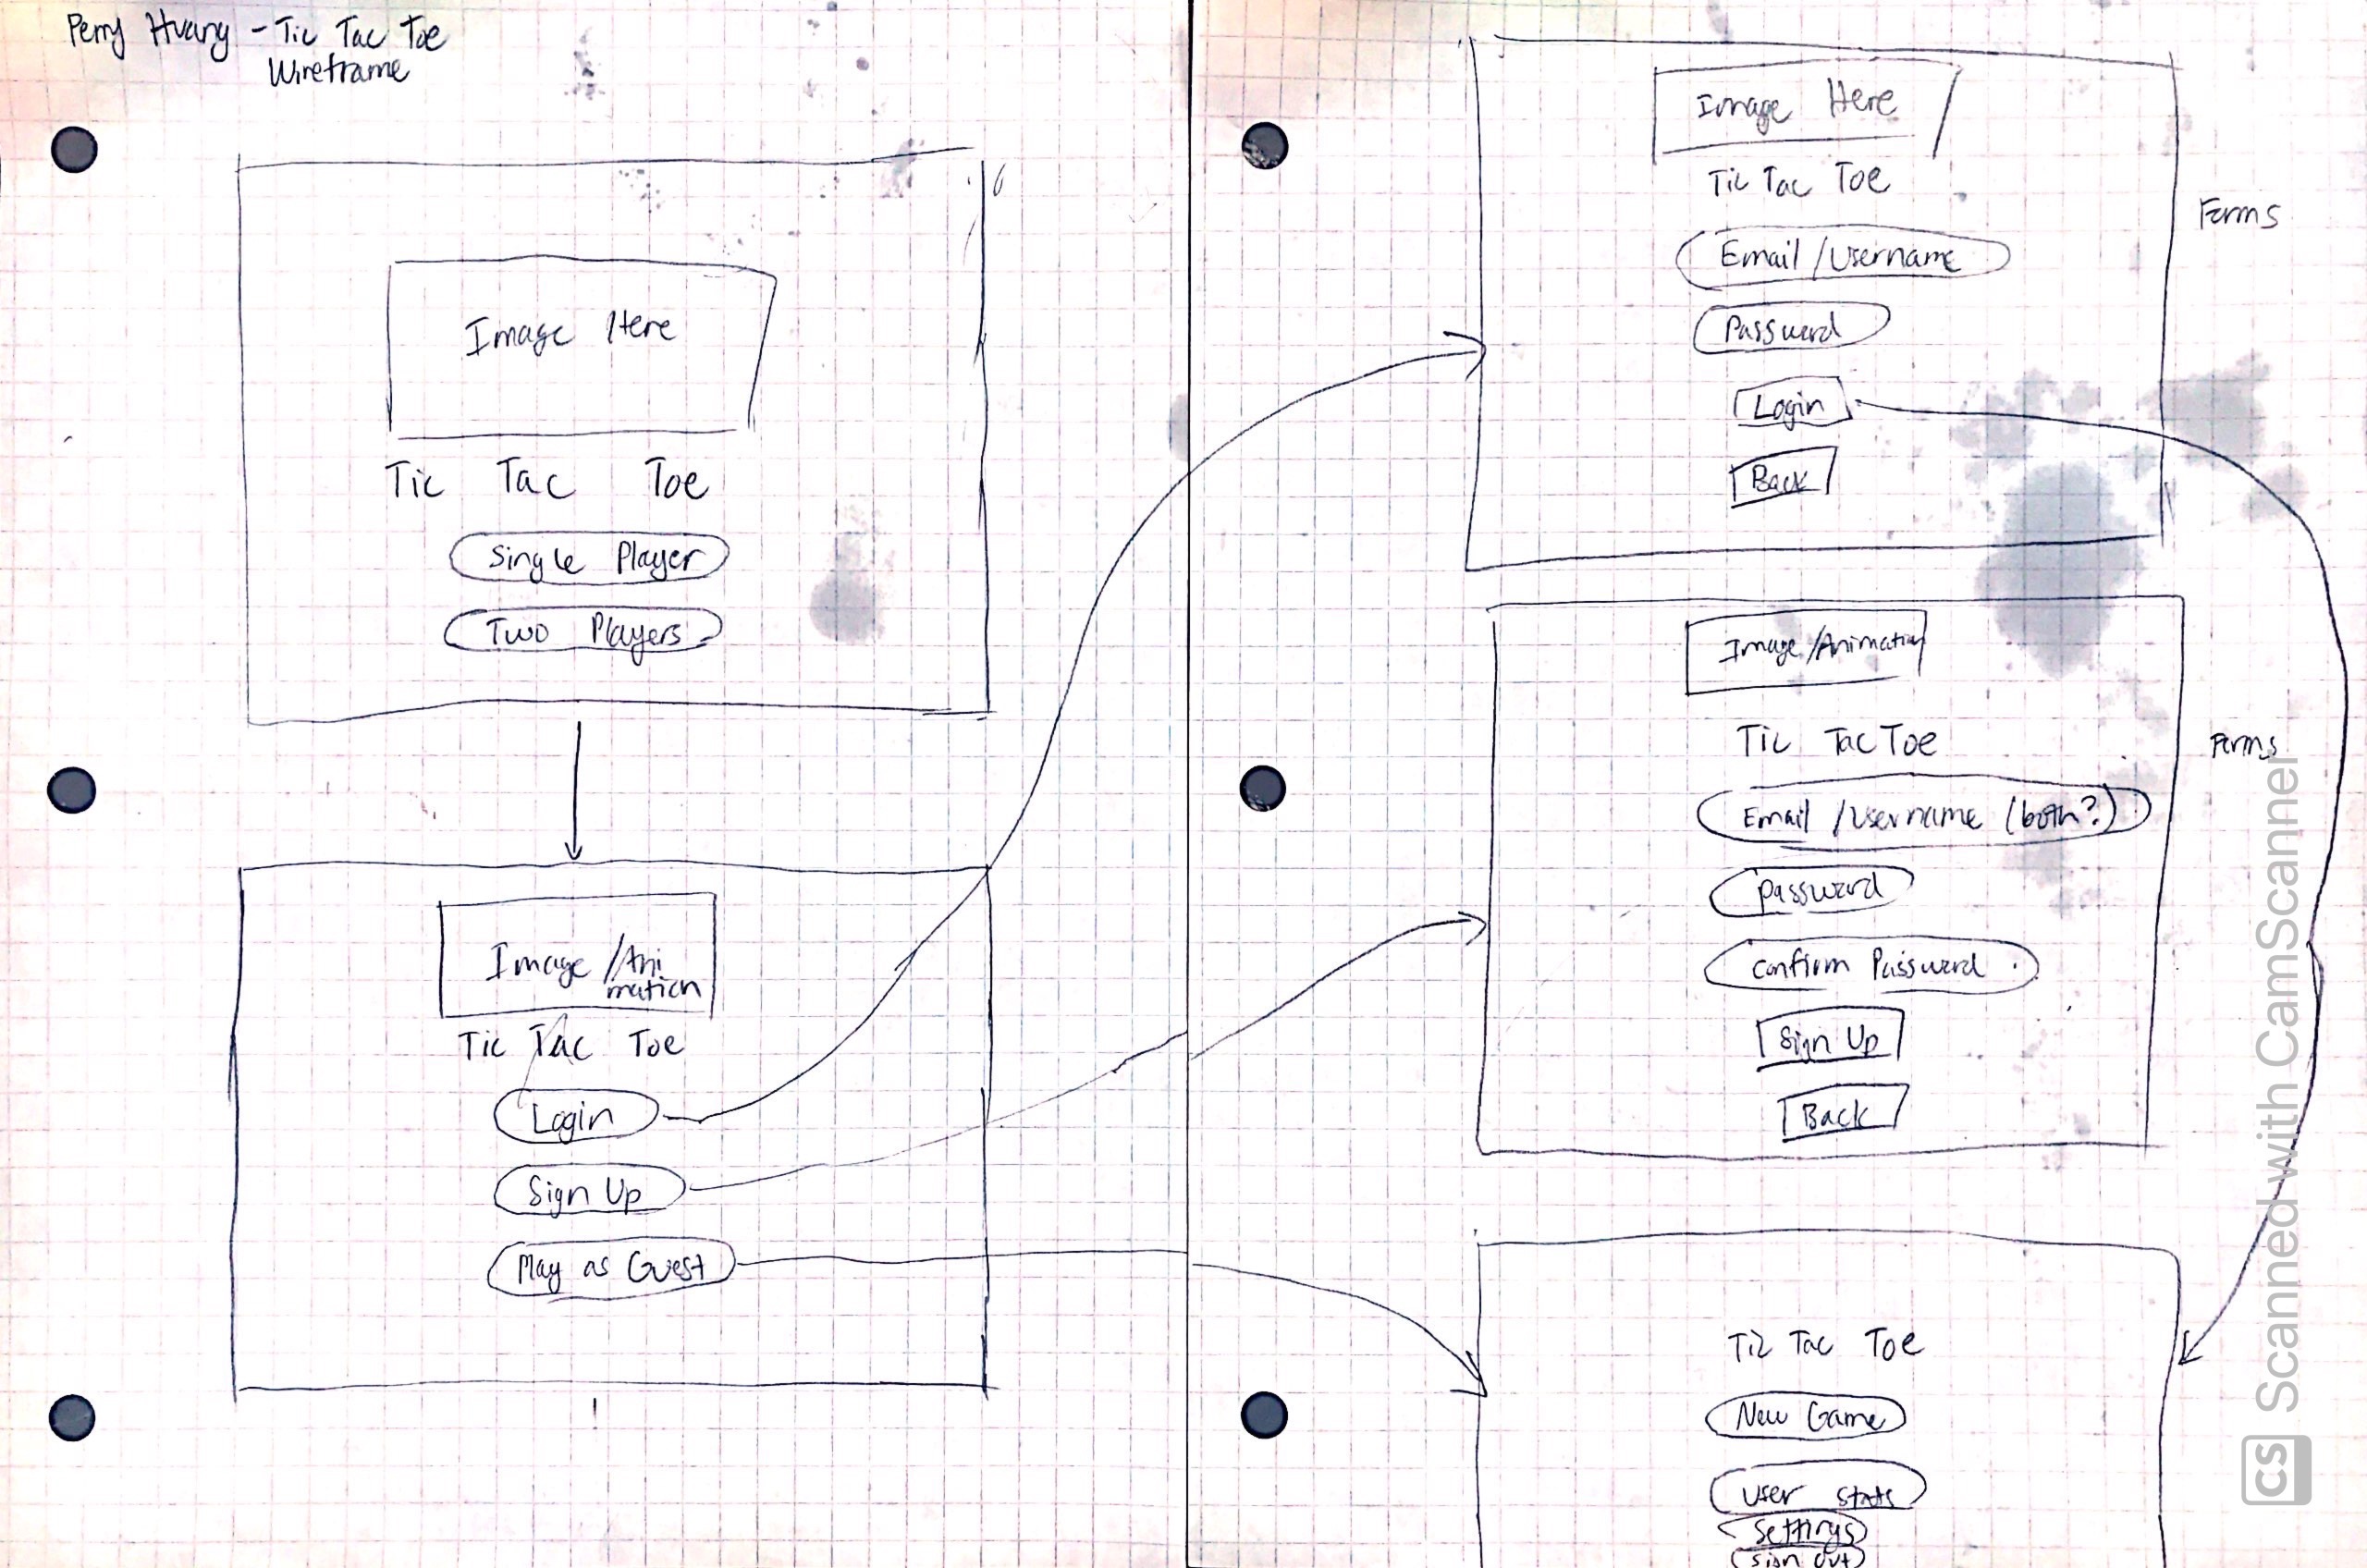 Perry Huang - Tic Tac Toe
Wireframe
Image Here
Tic Tac Toe
Single Player
Two Players
Image /Ani
mation
Tic Tac Toe
Login
Sign Up
Play as Guest
Image Here
Tic Tac Toe
Email /Username
Password
Login
Back
Forms
Image /Animation
Tic Tac Toe
Email /Username (both?)
Password
Confirm Password
Sign Up
Back
Forms
Tic Tac Toe
New Game
User Stats
Settings
Sign Out
CS Scanned with CamScanner